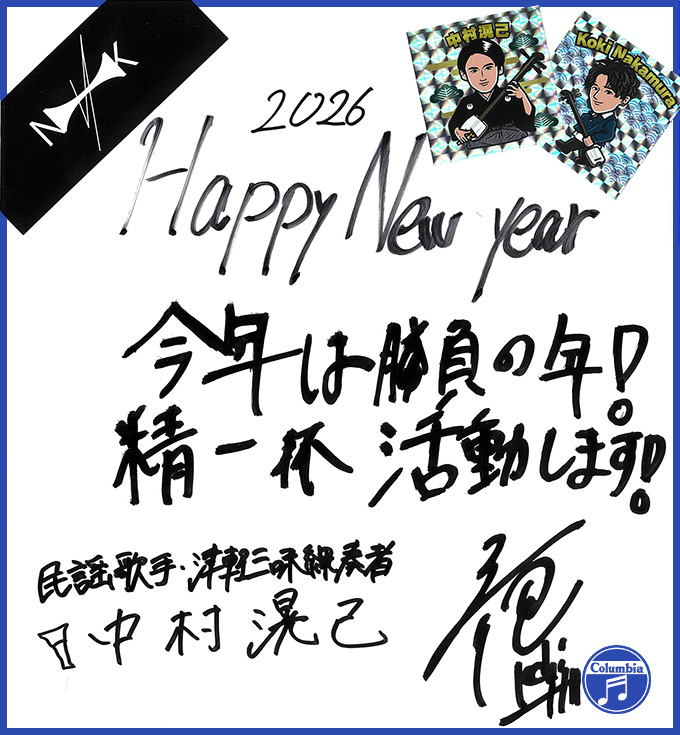 NK
中村滉己
Koki Nakamura
2026
Happy New year
今年は勝負の年!
精一杯 活動します!
民謡歌手・津軽三味線奏者
中村滉己
Columbia